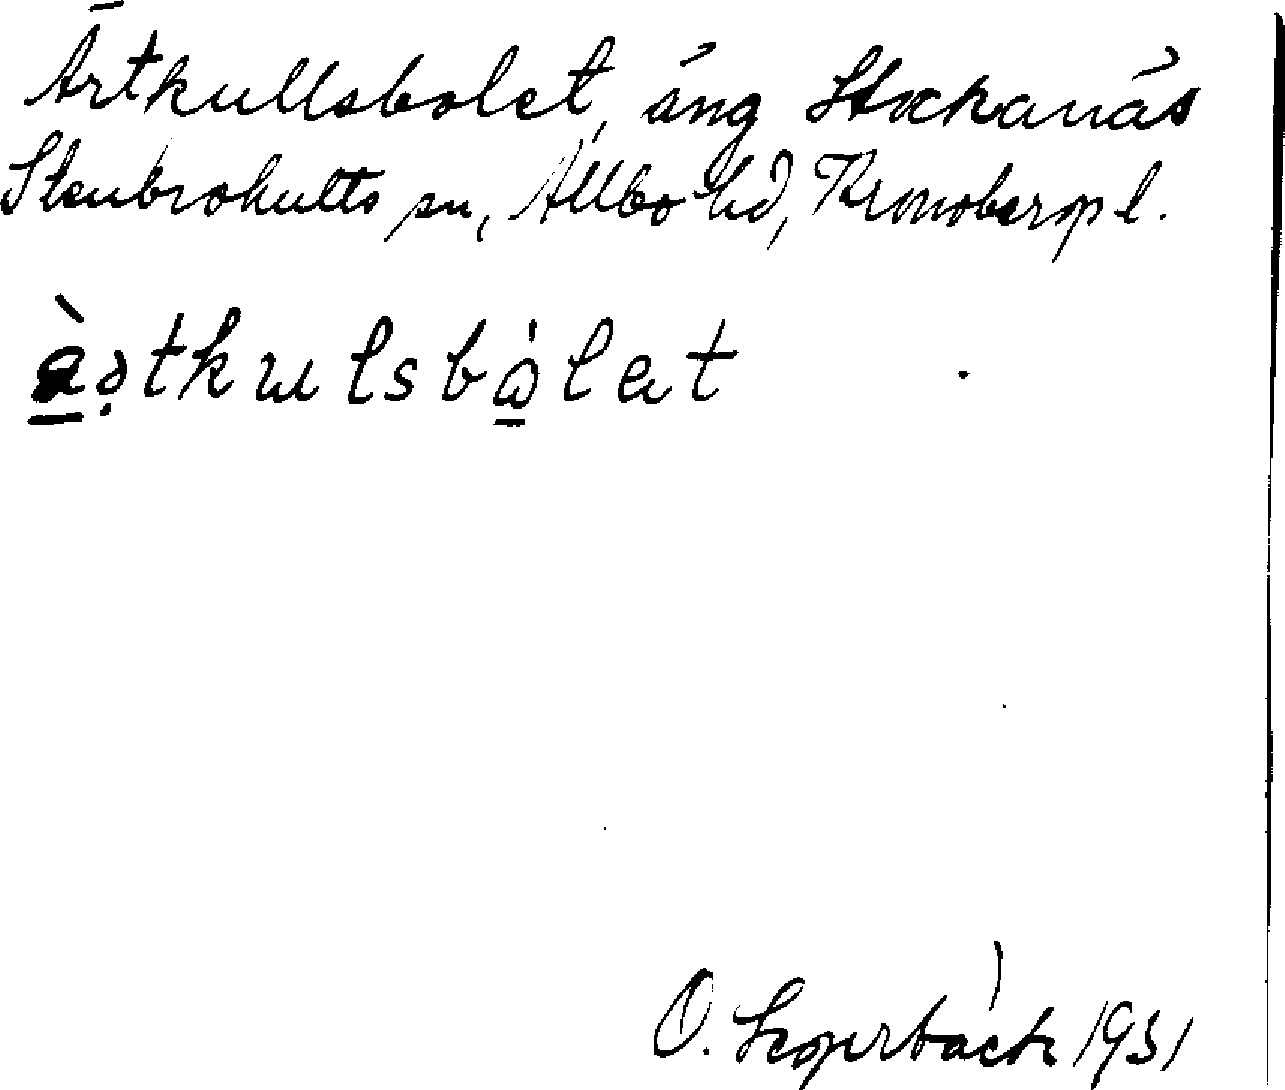 Ärtkullsbolet, äng Stockanäs
Stenbrohults sn, Allbo hd, Kronobergs l.
à̱ətkulsbo̱let
O. Lagerbäck 1931